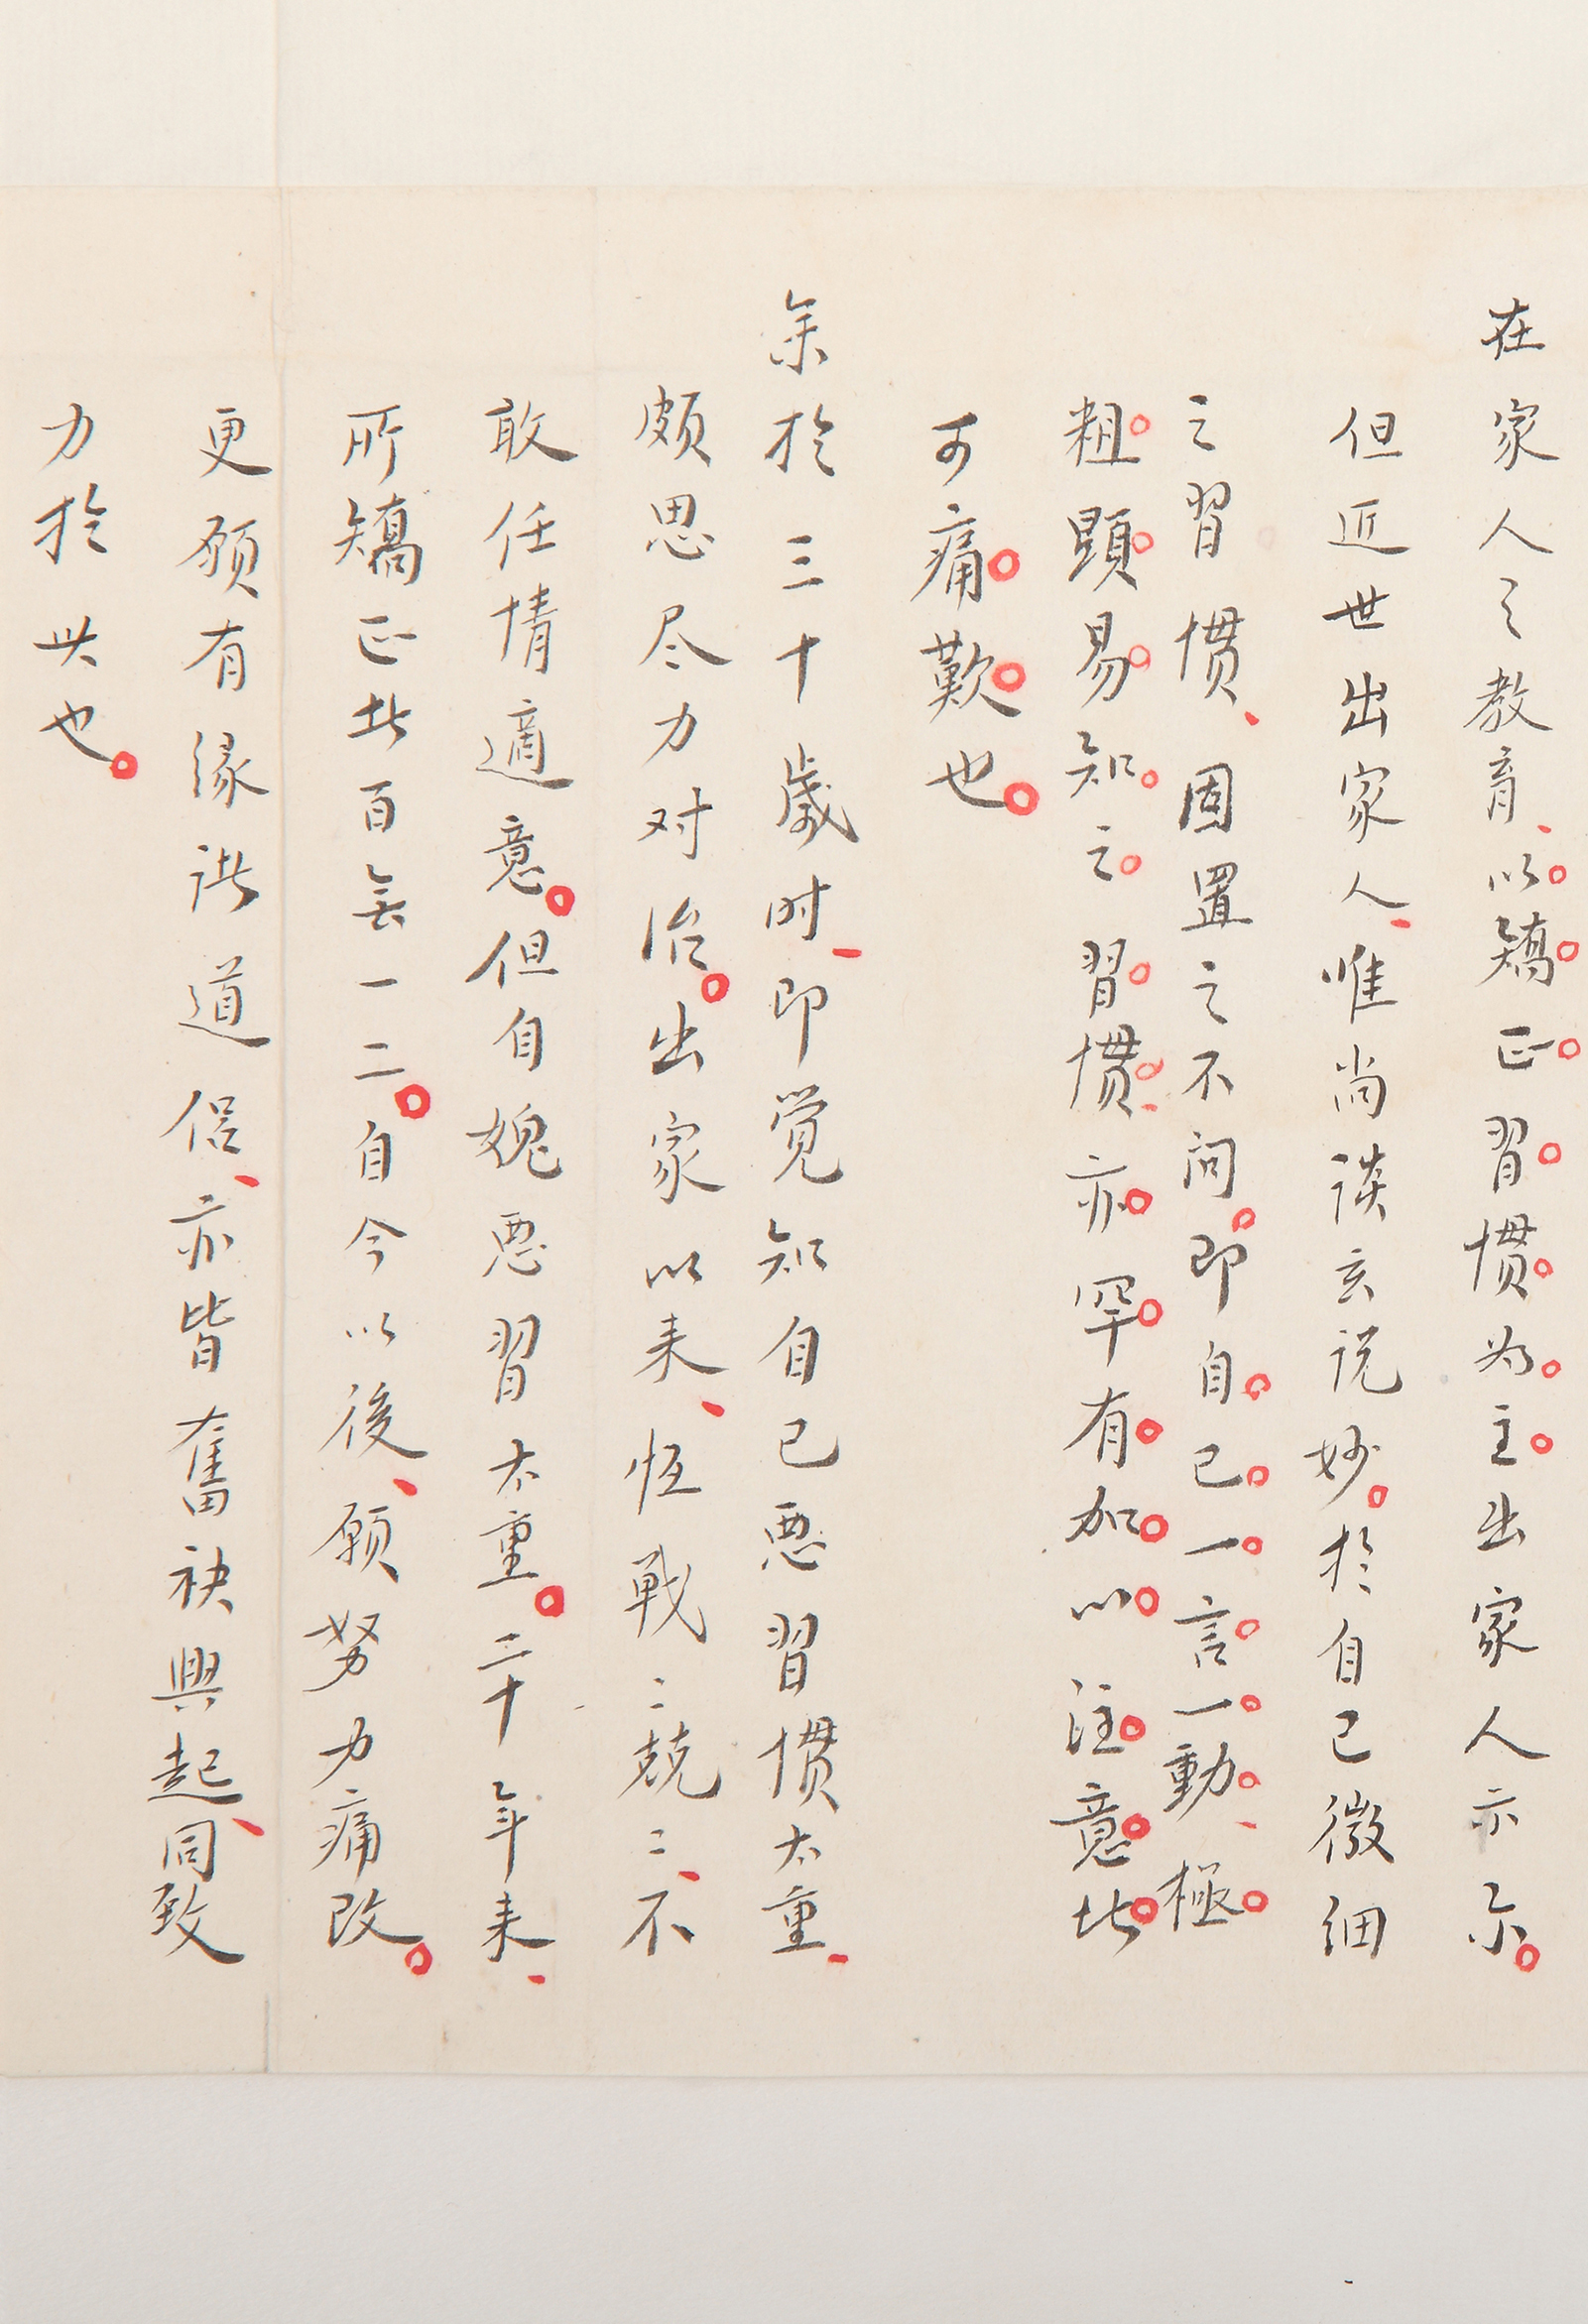 在家人之教育、以矯正習慣为主出家人亦尔。
但近世出家人、唯尚談玄说妙。於自己微细
之習慣、固置之不问。即自己一言一動、極
粗顕易知之習慣、亦罕有加以注意此
可痛歎也。
余於三十歲时、即覚知自己悪習慣太重、
頗思尽力对治。出家以来、恒戰〻兢〻、不
敢任情適意。但自媿悪習太重。二十年来、
所矯正者百无一二。自今以後、願努力痛改。
更願有緣諸道侣、亦皆奮袂興起、同致
力於此也。